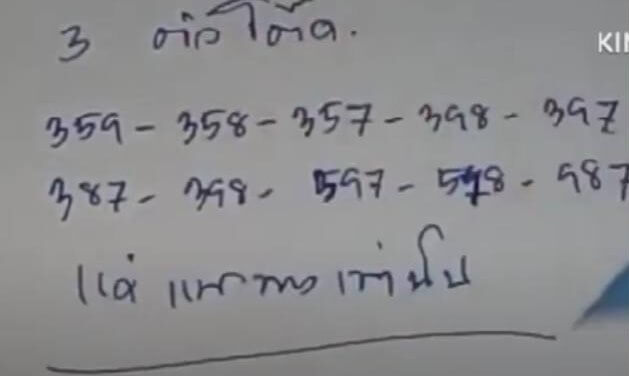 3 ตัวโต๊ด.
KIN
359 - 358 - 357 - 398 - 397
387 - 398 - 597 - 598 - 987
แค่แนวทางเท่านั้น